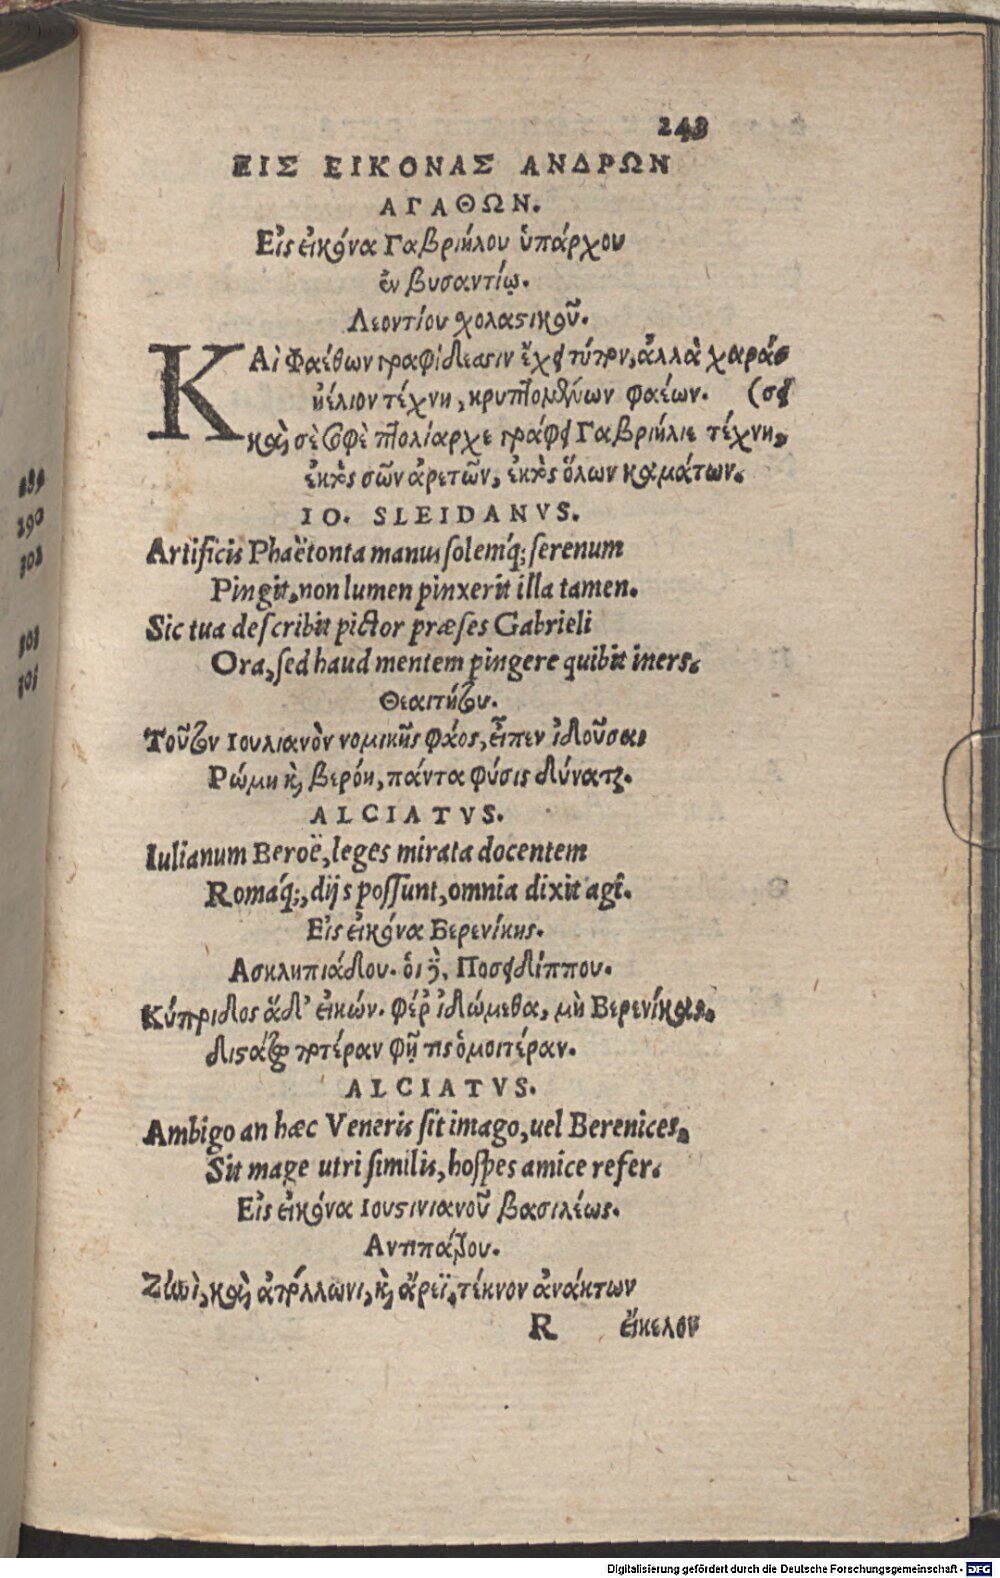 243
ΕΙΣ ΕΙΚΟΝΑΣ ΑΝΔΡΩΝ
ΑΓΑΘΩΝ.
Εἰς εἰκόνα Γαβριήλου ὑπάρχου
ἐν βυσαντίῳ.
Λεοντίου σχολαστικοῦ.
ΚΑὶ Φαέθων γραφίδεσσιν ἔχει τύπον, ἀλλὰ χαράσ
ἠέλιον τέχνη, κρυπτομένων φαέων. (σει
καὶ σὲ σοφὲ πτολίαρχε γράφει Γαβριήλιε τέχνη,
ἐκτὸς σῶν ἀρετῶν, ἐκτὸς ὅλων καμάτων.
IO. SLEIDANVS.
Artificis Phaëtonta manus solemq́; serenum
Pingit, non lumen pinxerit illa tamen.
Sic tua describit pictor præses Gabrieli
Ora, sed haud mentem pingere quibit iners.
Θεαιτήτου.
Τοῦτον Ιουλιανὸν νομικῆς φάος, εἶπεν ἰδοῦσαι
Ρώμη καὶ βερόη, πάντα φύσις δύναται.
ALCIATVS.
Iulianum Beroë, leges mirata docentem
Romaq́;, dijs possunt, omnia dixit agi.
Εἰς εἰκόνα Βερενίκης.
Ασκληπιάδου. ὁι δὲ, Ποσειδίππου.
Κύπριδος ἅδ' εἰκών. φέρ' ἰδώμεθα, μὴ Βερενίκας.
διστάζω ποτέραν φῇ τις ὁμοιτέραν.
ALCIATVS.
Ambigo an hæc Veneris sit imago, uel Berenices,
Sit mage utri similis, hospes amice refer.
Εἰς εἰκόνα Ιουστινιανοῦ βασιλέως.
Αντιπάτρου.
Ζηνὶ, καὶ ἀπόλλωνι, καὶ ἄρεϊ, τέκνον ἀνάκτων
R εἴκελον
289
290
302
301
301
Digitalisierung gefördert durch die Deutsche Forschungsgemeinschaft - DFG